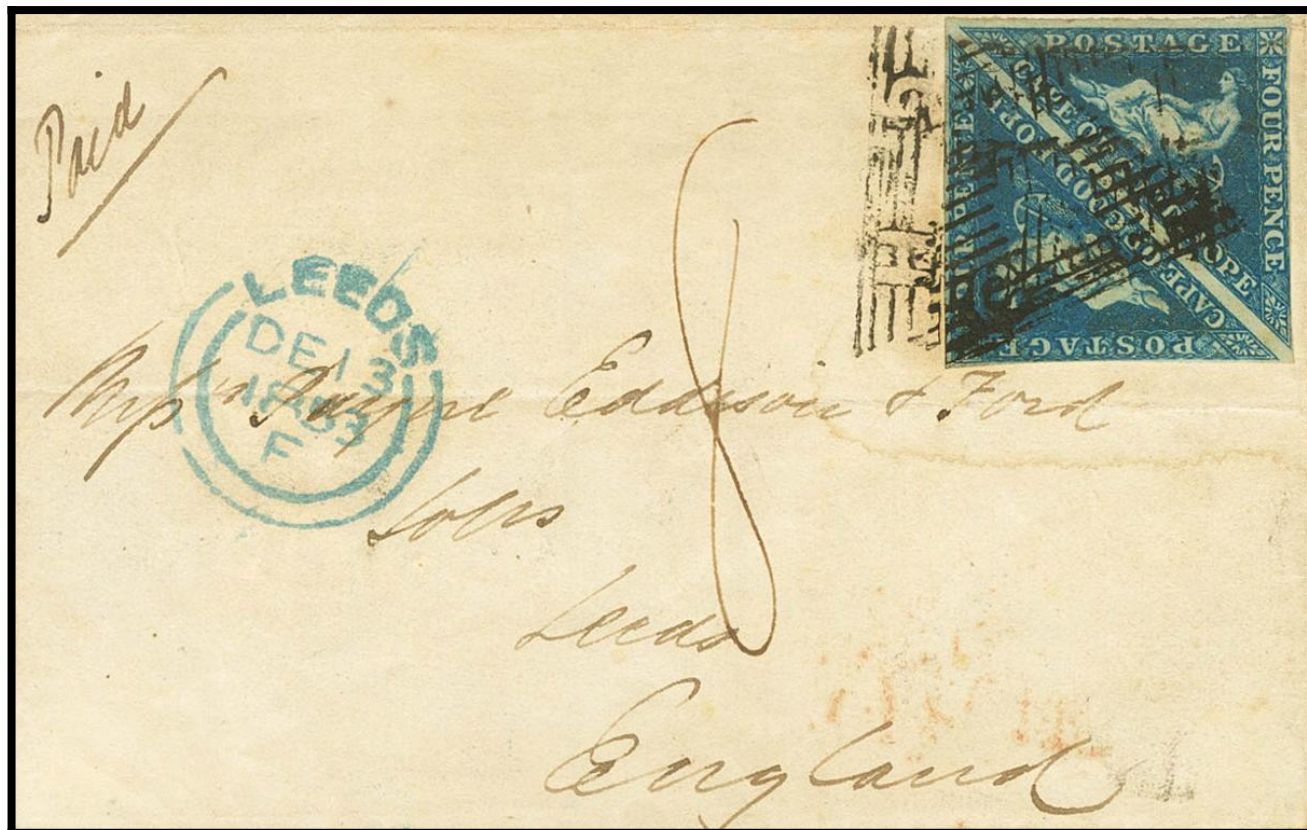 Paid
POSTAGE
FOUR PENCE
CAPE OF GOOD HOPE
CAPE OF GOOD HOPE
FOUR PENCE
POSTAGE
LEEDS
DE 13
1853
F
8
Payne Eddison & Ford
Solrs
Leeds
England